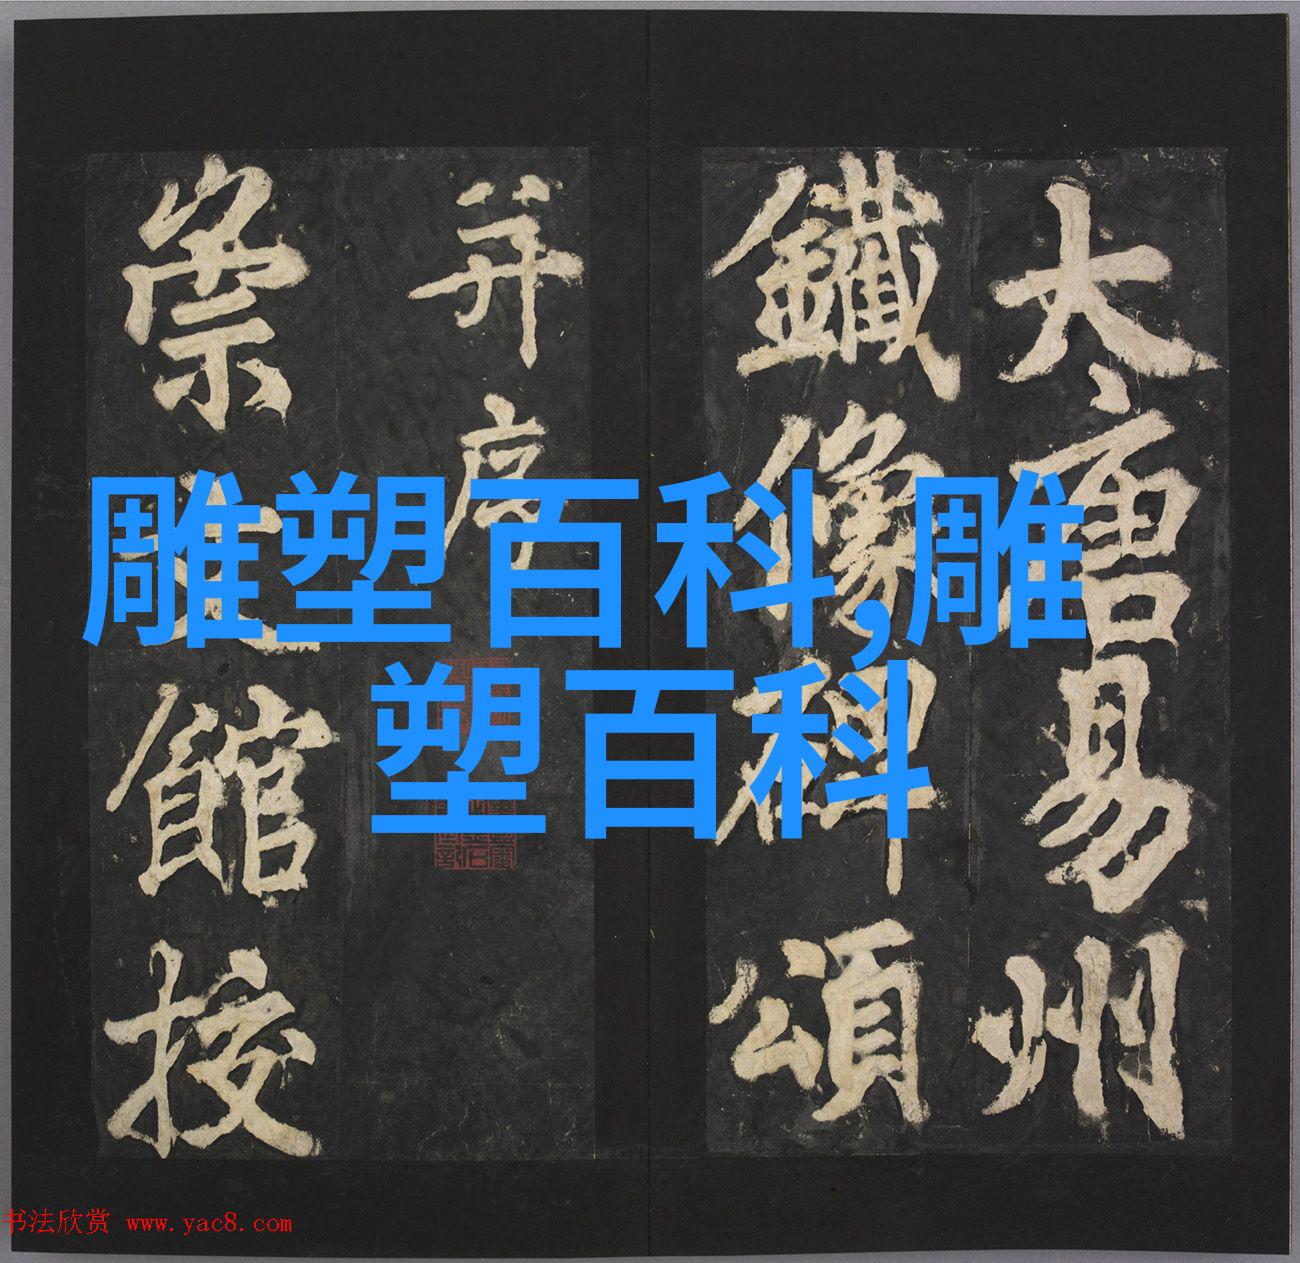 大唐易州
鐵像碑頌
并序
崇文館校
雕塑百科,雕
塑百科
书法欣赏 www.yac8.com